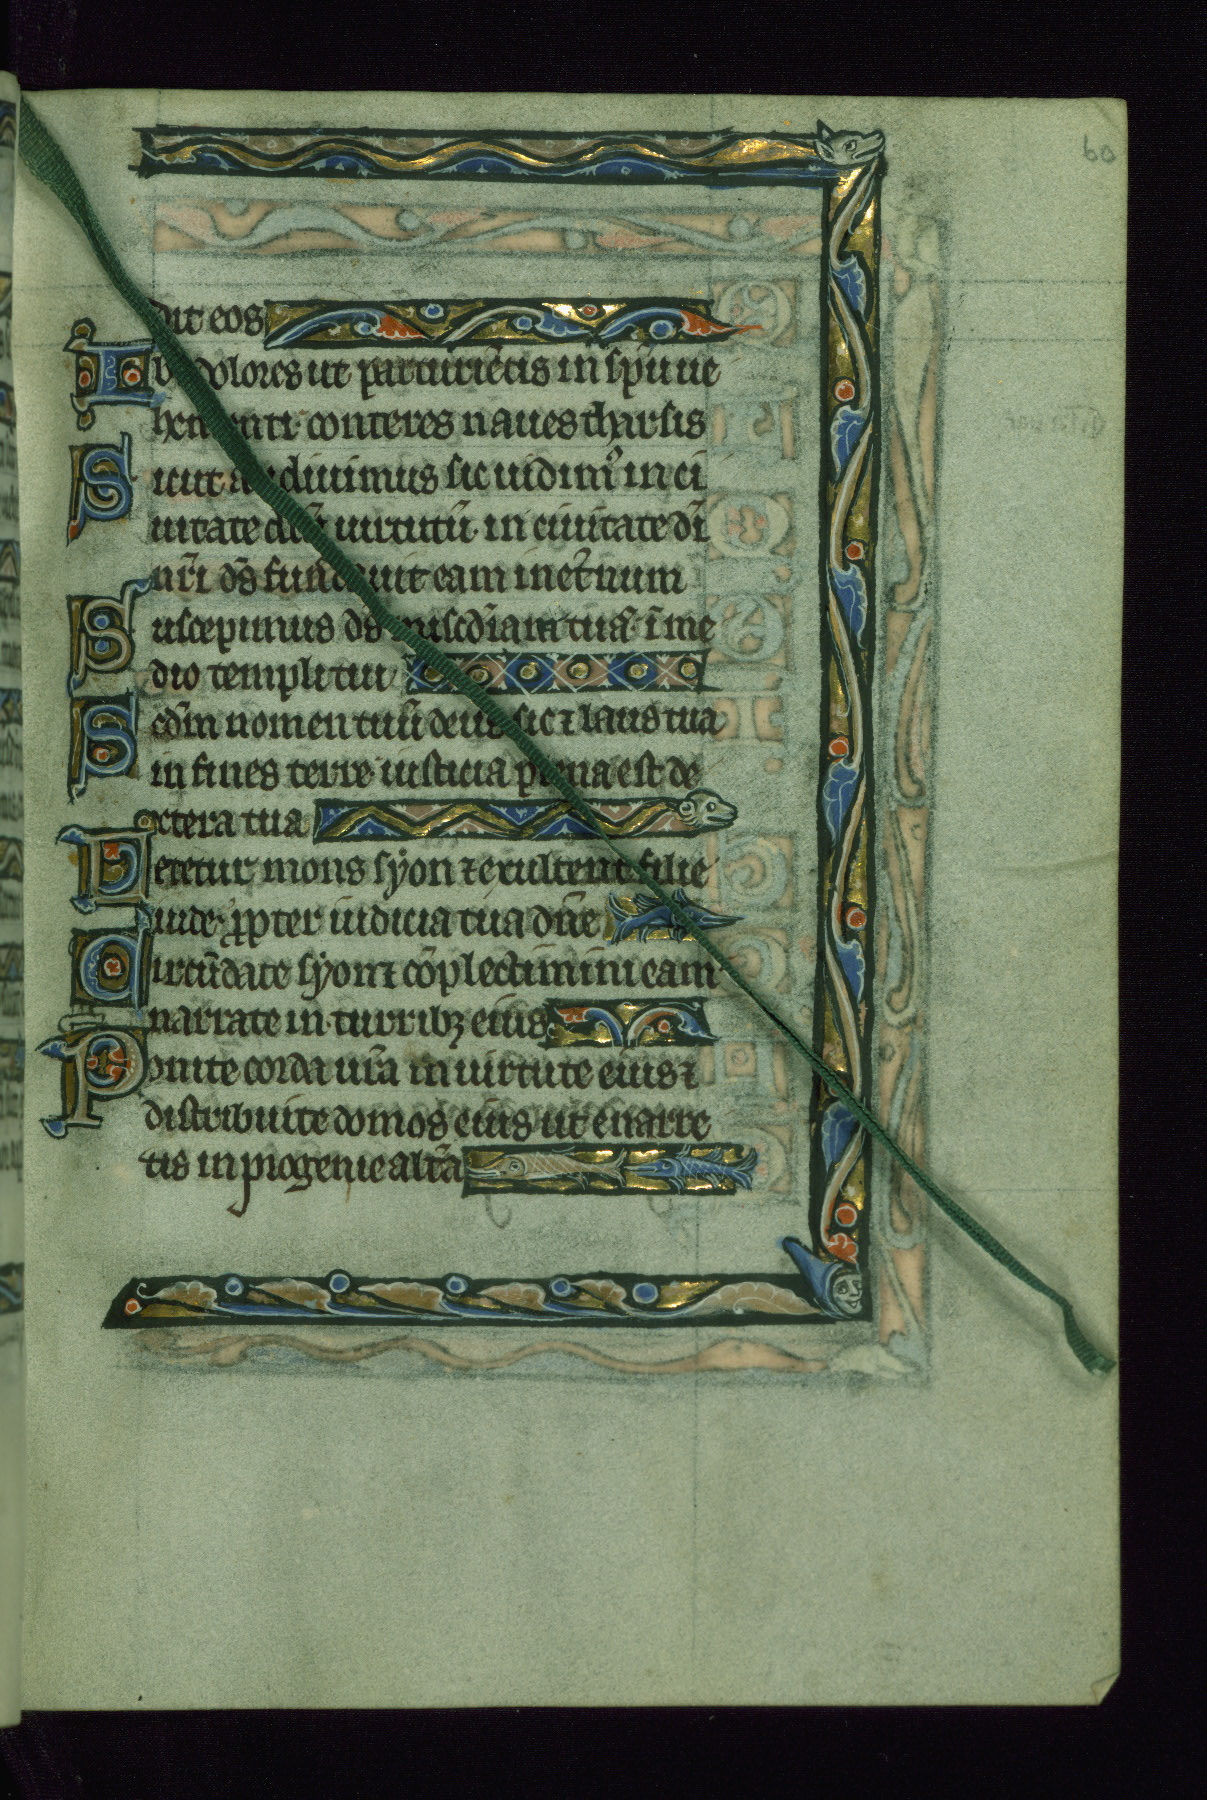 60
dit eos
Ibi dolores ut parturiẽtis in sp̃u ue
hementi conteres naues tharsis
Sicut audiuimus sic uidimꝰ in ci
uitate dñi uirtutũ in ciuitate dĩ
nr̃i ds̃ fundauit eam in et̃num
Suscepimus ds̃ misc̃diam tuã ĩ me
dio templi tui
Scdm̃ nomen tuũ deus sic ⁊ laus tua
in fines terre iusticia plena est de
xtera tua
Letetur mons syon ⁊ exultent filie
iude ꝓpter iudicia tua dñe
Circũdate syon ⁊ cõplectimini eam
narrate in turribꝫ eius
Ponite corda ur̃a in uirtute eius ⁊
distribuite domos eius ut enarre
tis in progenie altã